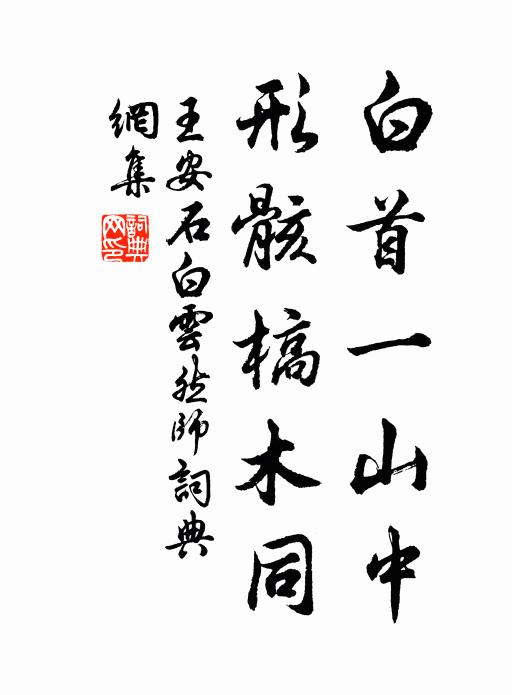 白首一山中
形骸槁木同
王安石白雲然師詞典
網集
詞典
网印